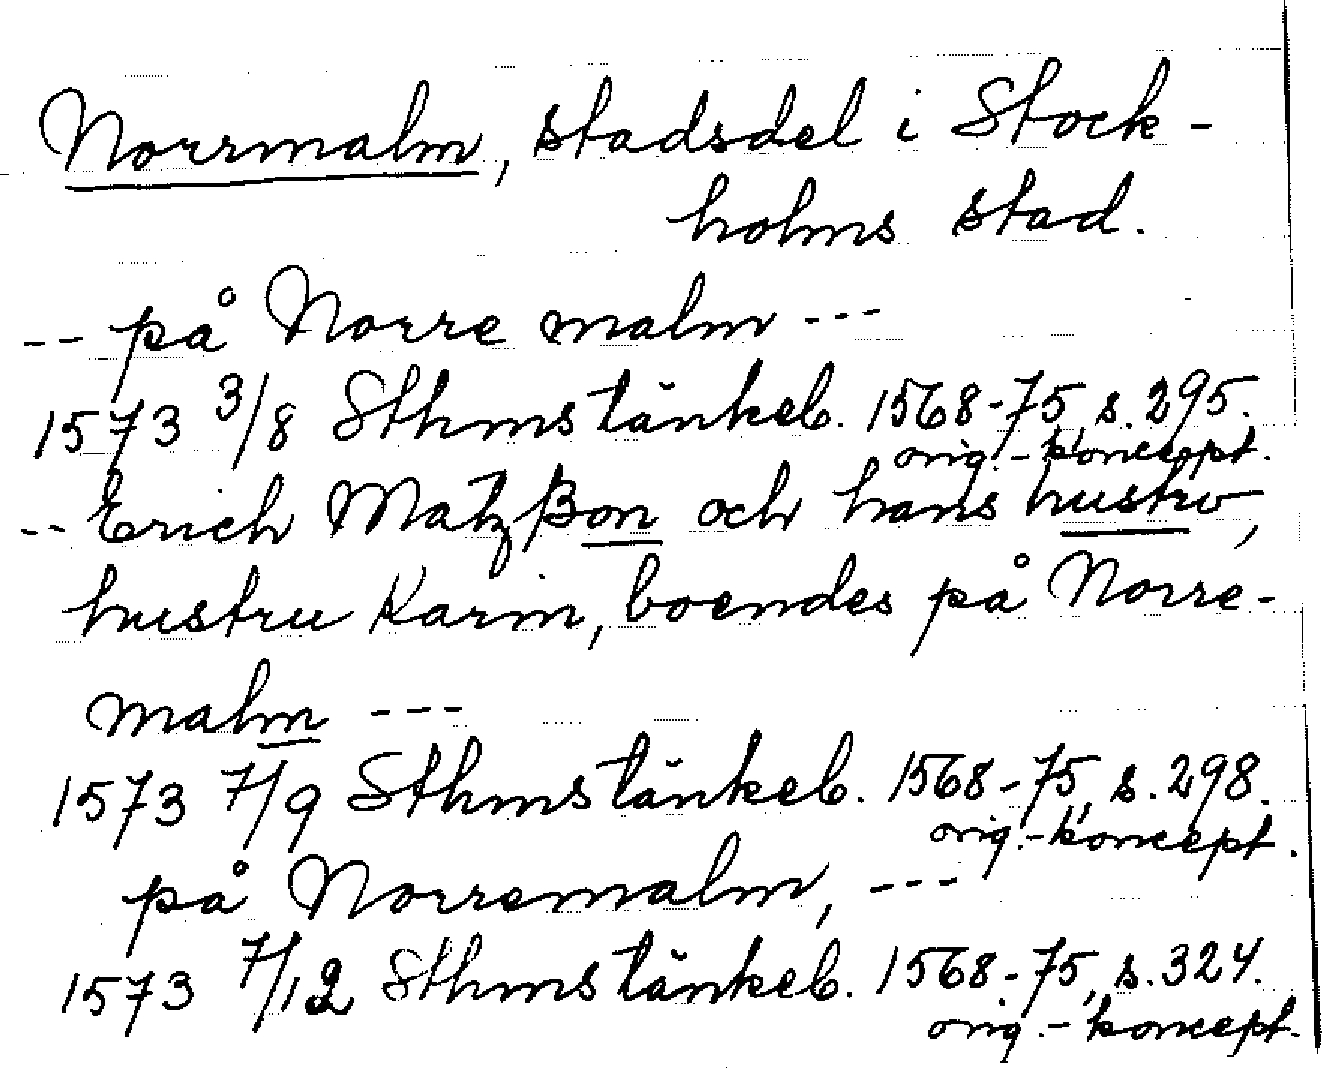 Norrmalm, stadsdel i Stock-
holms stad.
-- på Norre malm ---
1573 3/8 Sthms tänkeb. 1568-75, s. 295.
orig.-koncept.
-- Erich Matzßon och hans hustrv,
hustru Karin, boendes på Norre-
malm ---
1573 7/9 Sthms tänkeb. 1568-75, s. 298.
orig.-koncept.
på Norremalm, ---
1573 7/12 Sthms tänkeb. 1568-75, s. 324.
orig.-koncept.